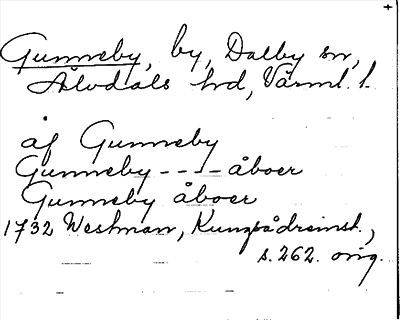 Gunneby, by, Dalby sn,
Älvdals hd, Värml. l.
åf Gunneby
Gunneby - - - - åboer
Gunneby åboer
1732 Westman, Kungsådreinst.,
s. 262. orig.